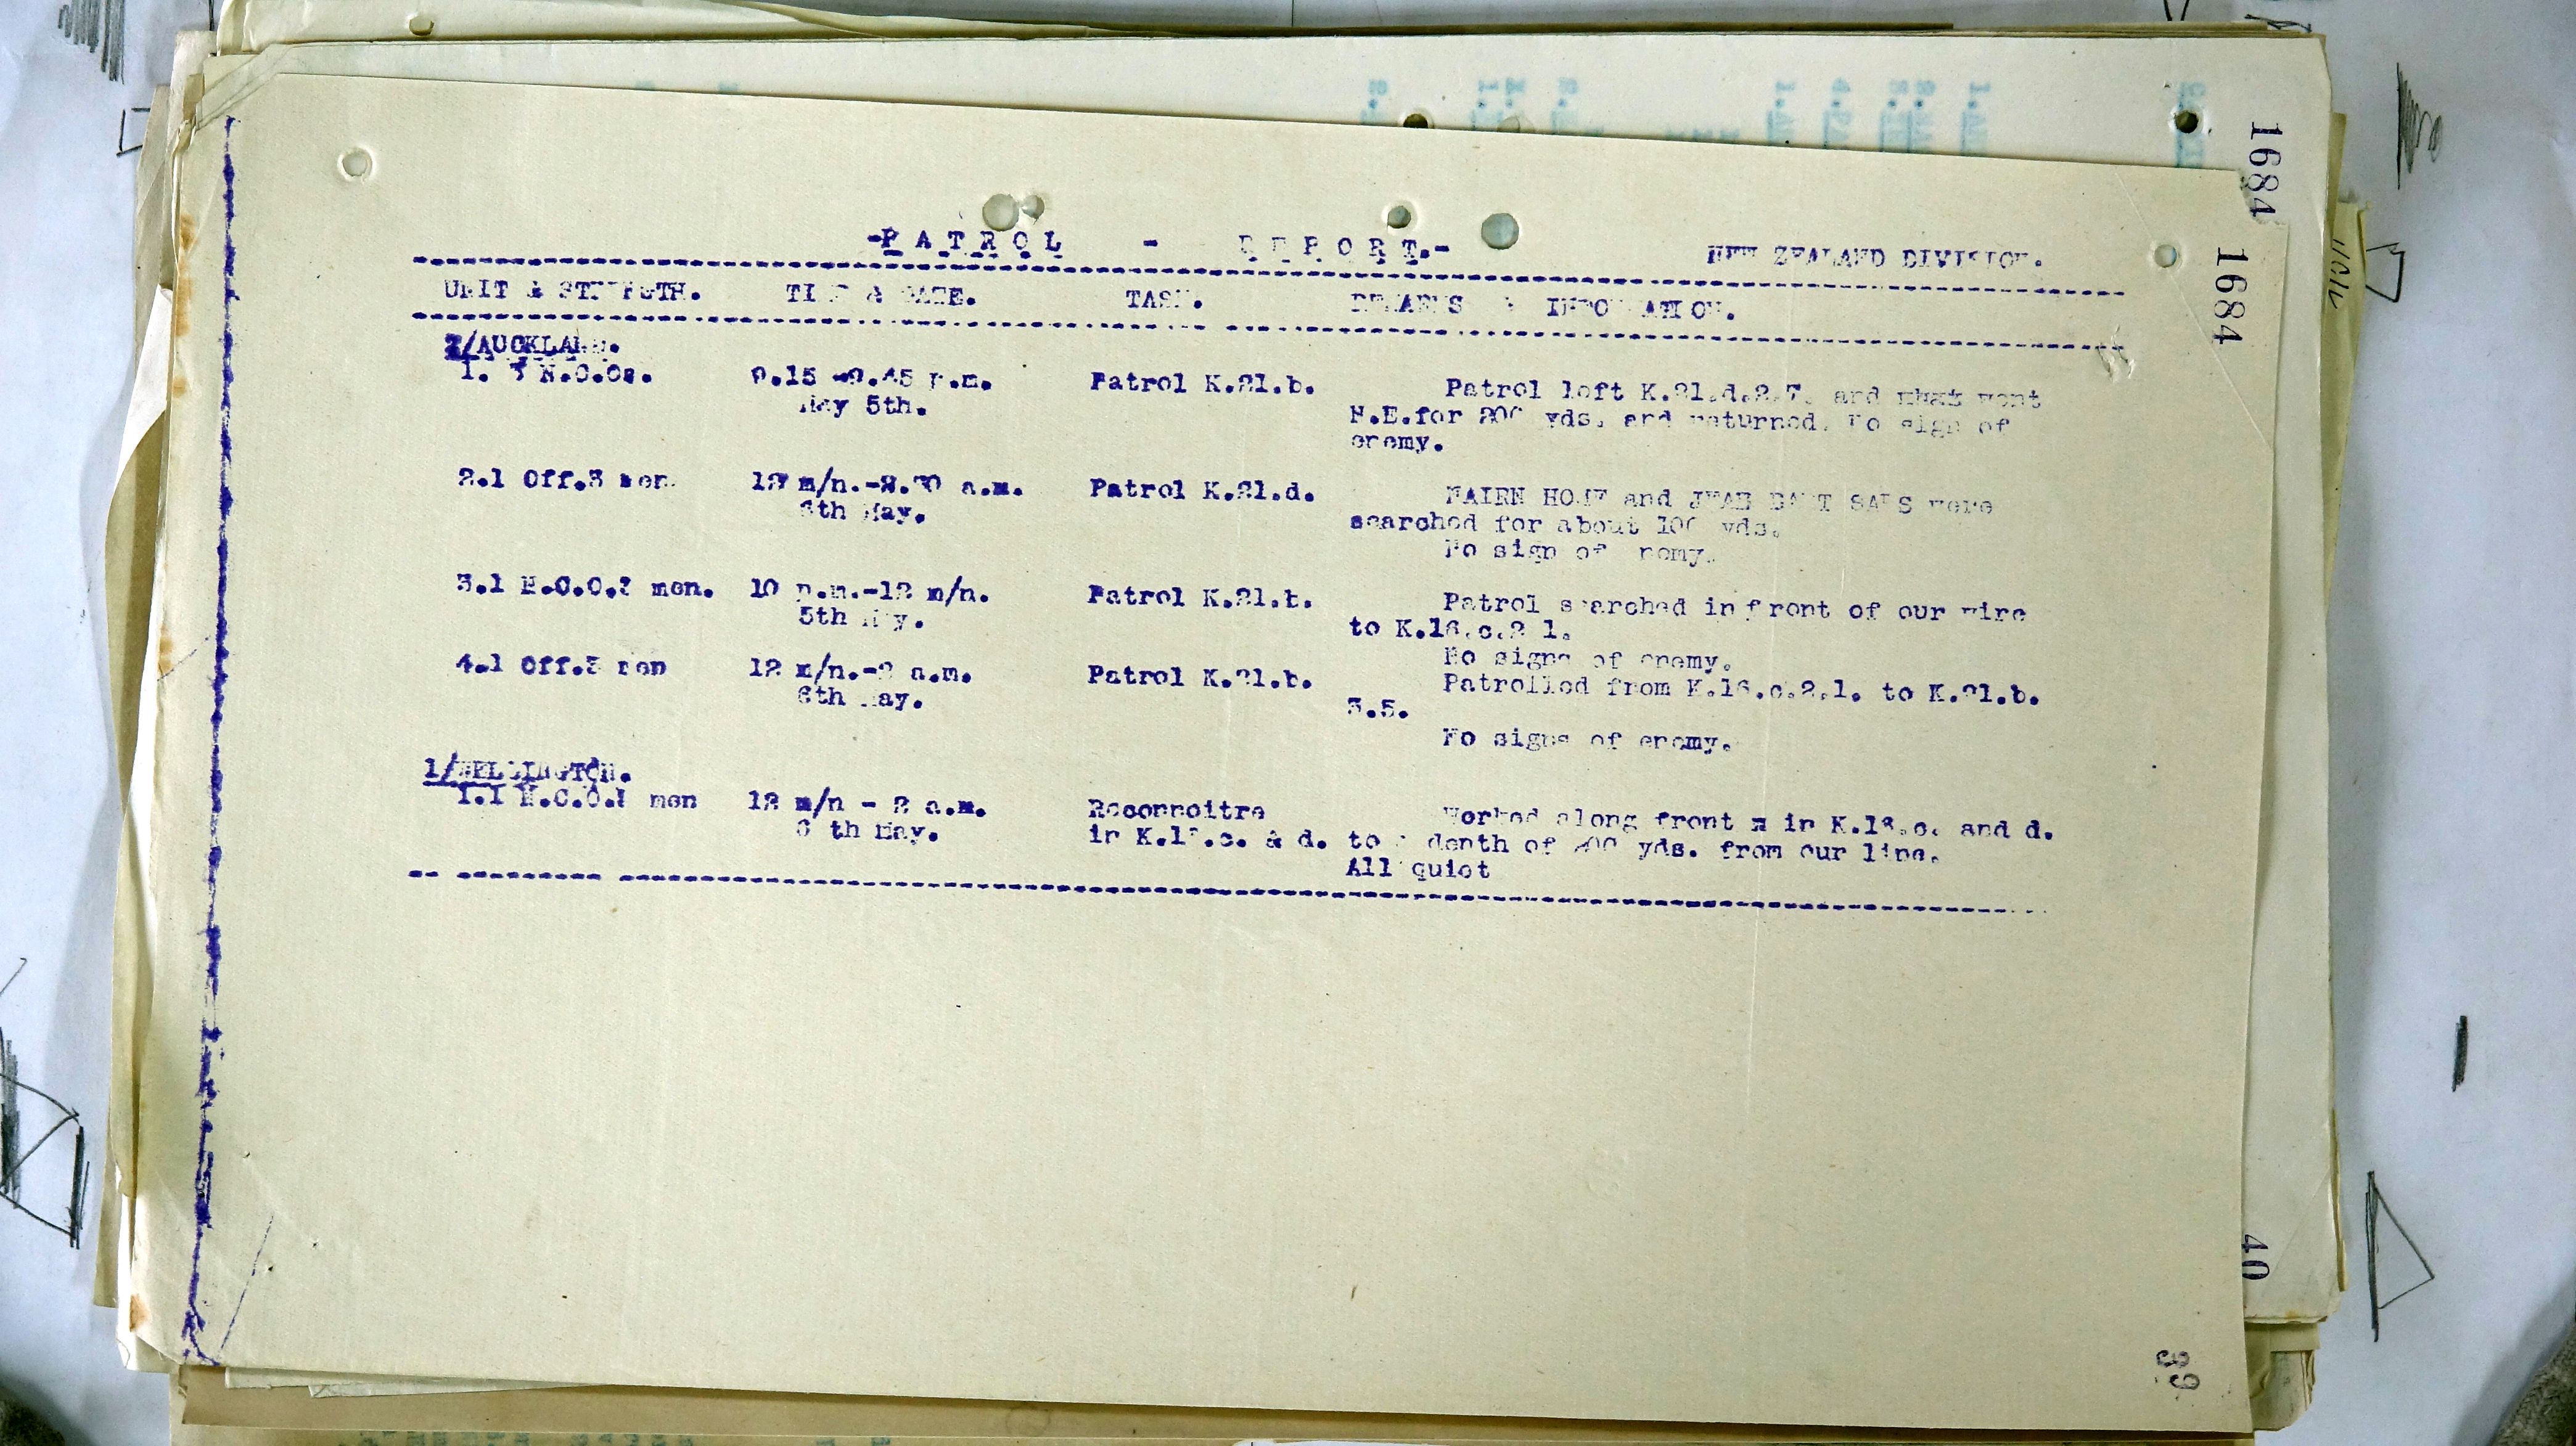 -P A T R O L - R E P O R T.-
NEW ZEALAND DIVISION.
UNIT & STRENGTH. TIME & DATE. TASK. REMARKS & INFORMATION.
2/AUCKLAND.
1. 3 N.C.Os. 9.15 -9.45 p.m. Patrol K.21.b. Patrol left K.21.d.2.7. and went
May 5th. N.E.for 200 yds. and returned. No sign of
enemy.
2.1 Off.3 men 12 m/n.-2.30 a.m. Patrol K.21.d. and were
6th May. searched for about 100 yds.
No sign of enemy.
3.1 N.C.O. men. 10 p.m.-12 m/n. Patrol K.21.b. Patrol searched in front of our wire
5th May. to K.16.c.2 1.
No signs of enemy.
4.1 Off.3 men 12 m/n.-2 a.m. Patrol K.21.b. Patrolled from K.16.c.2.1. to K.21.b.
6th May. 3.5.
No signs of enemy.
1/WELLINGTON.
1.1 N.C.O. men 12 m/n - 2 a.m. Reconnoitre Worked along front in K.16.c. and d.
6 th May. in K.16.c. & d. to depth of yds. from our line.
All quiet
1684
1684
40
39